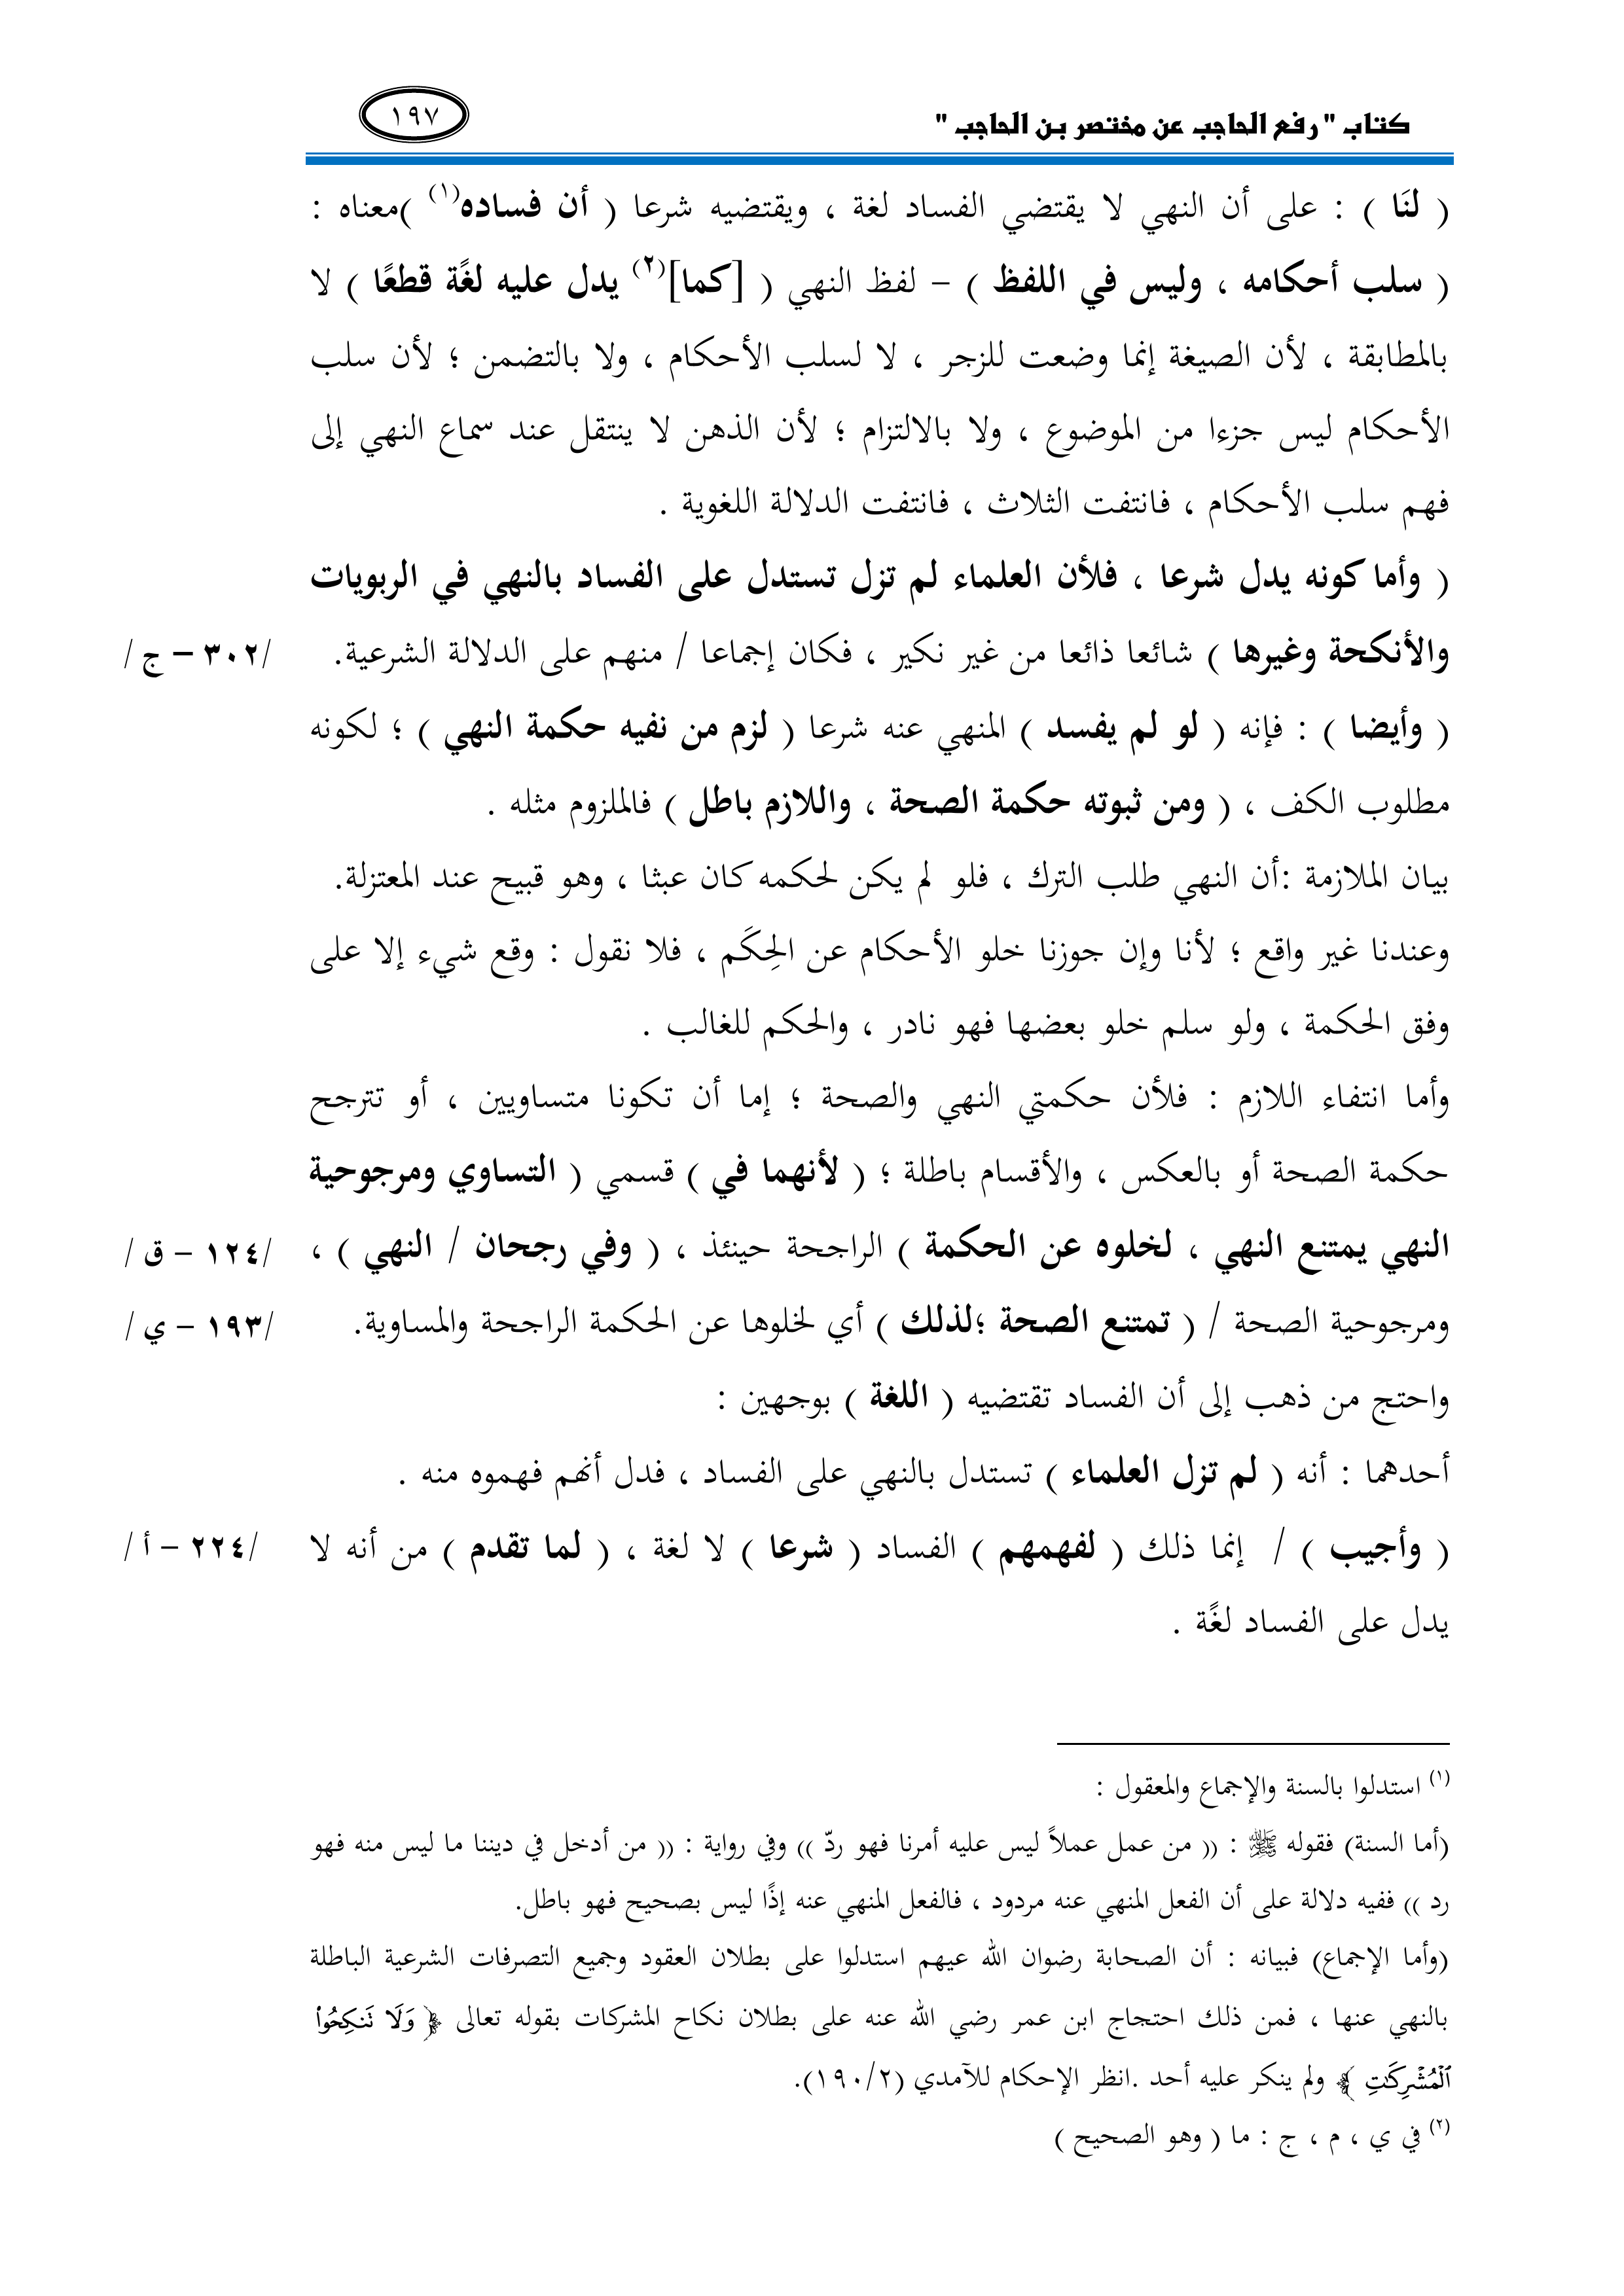 كتاب " رفع الحاجب عن مختصر بن الحاجب "
١٩٧
( لنَا ) : على أن النهي لا يقتضي الفساد لغة ، ويقتضيه شرعا ( أن فساده(١) )معناه :
( سلب أحكامه ، وليس في اللفظ ) – لفظ النهي ( [كما](٢) يدل عليه لغًة قطعًا ) لا
بالمطابقة ، لأن الصيغة إنما وضعت للزجر ، لا لسلب الأحكام ، ولا بالتضمن ؛ لأن سلب
الأحكام ليس جزءا من الموضوع ، ولا بالالتزام ؛ لأن الذهن لا ينتقل عند سماع النهي إلى
فهم سلب الأحكام ، فانتفت الثلاث ، فانتفت الدلالة اللغوية .
( وأما كونه يدل شرعا ، فلأن العلماء لم تزل تستدل على الفساد بالنهي في الربويات
والأنكحة وغيرها ) شائعا ذائعا من غير نكير ، فكان إجماعا / منهم على الدلالة الشرعية. /٣٠٢ – ج /
( وأيضا ) : فإنه ( لو لم يفسد ) المنهي عنه شرعا ( لزم من نفيه حكمة النهي ) ؛ لكونه
مطلوب الكف ، ( ومن ثبوته حكمة الصحة ، واللازم باطل ) فالملزوم مثله .
بيان الملازمة :أن النهي طلب الترك ، فلو لم يكن لحكمه كان عبثا ، وهو قبيح عند المعتزلة.
وعندنا غير واقع ؛ لأنا وإن جوزنا خلو الأحكام عن الحِكَم ، فلا نقول : وقع شيء إلا على
وفق الحكمة ، ولو سلم خلو بعضها فهو نادر ، والحكم للغالب .
وأما انتفاء اللازم : فلأن حكمتي النهي والصحة ؛ إما أن تكونا متساويين ، أو تترجح
حكمة الصحة أو بالعكس ، والأقسام باطلة ؛ ( لأنهما في ) قسمي ( التساوي ومرجوحية
النهي يمتنع النهي ، لخلوه عن الحكمة ) الراجحة حينئذ ، ( وفي رجحان / النهي ) ، /١٢٤ – ق /
ومرجوحية الصحة / ( تمتنع الصحة ؛لذلك ) أي لخلوها عن الحكمة الراجحة والمساوية. /١٩٣ – ي /
واحتج من ذهب إلى أن الفساد تقتضيه ( اللغة ) بوجهين :
أحدهما : أنه ( لم تزل العلماء ) تستدل بالنهي على الفساد ، فدل أنهم فهموه منه .
( وأجيب ) / إنما ذلك ( لفهمهم ) الفساد ( شرعا ) لا لغة ، ( لما تقدم ) من أنه لا /٢٢٤ – أ /
يدل على الفساد لغًة .
(١) استدلوا بالسنة والإجماع والمعقول :
(أما السنة) فقوله ﷺ : (( من عمل عملاً ليس عليه أمرنا فهو ردّ )) وفي رواية : (( من أدخل في ديننا ما ليس منه فهو
رد )) ففيه دلالة على أن الفعل المنهي عنه مردود ، فالفعل المنهي عنه إذًا ليس بصحيح فهو باطل.
(وأما الإجماع) فبيانه : أن الصحابة رضوان الله عيهم استدلوا على بطلان العقود وجميع التصرفات الشرعية الباطلة
بالنهي عنها ، فمن ذلك احتجاج ابن عمر رضي الله عنه على بطلان نكاح المشركات بقوله تعالى ﴿ وَلَا تَنكِحُوا۟
ٱلْمُشْرِكَٰتِ ﴾ ولم ينكر عليه أحد .انظر الإحكام للآمدي (١٩٠/٢).
(٢) في ي ، م ، ج : ما ( وهو الصحيح )